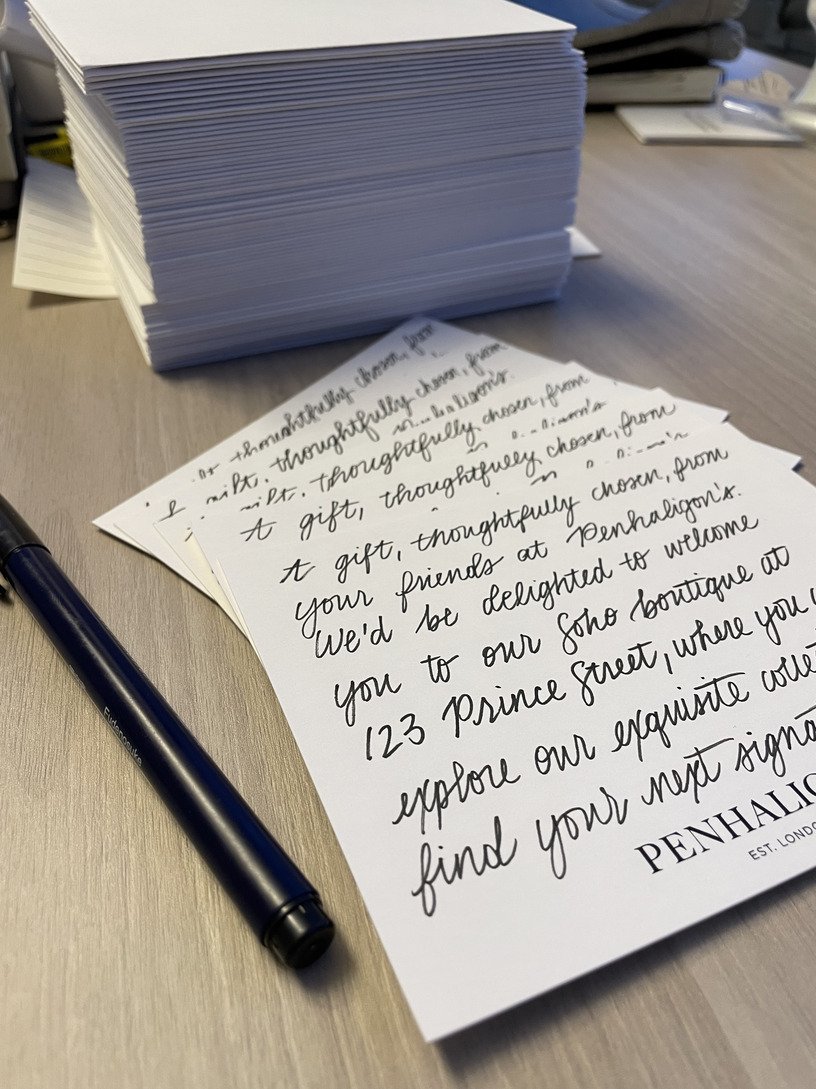 thoughtfully chosen, from
gift, thoughtfully chosen, from
gift, thoughtfully chosen, from
A gift, thoughtfully chosen, from
A gift, thoughtfully chosen, from
your friends at Penhaligon's.
We'd be delighted to welcome
you to our Soho boutique at
123 Prince Street, where you
explore our exquisite
find your next
PENHALIG
EST. LONDO
Fudenosuke